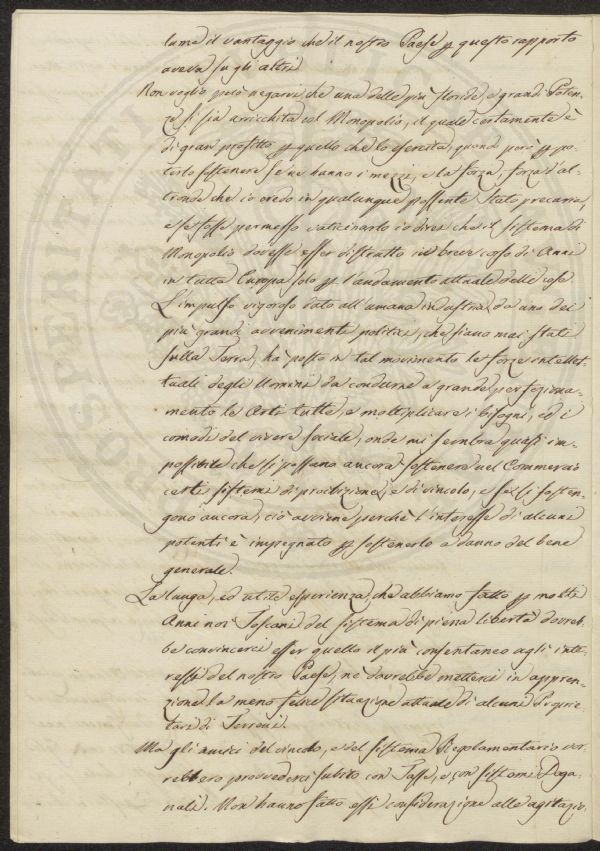 lume il vantaggio che il nostro Paese p questo rapporto
aveva su gli altri
Non voglio però negarvi che una delle più floride, e grandi Poten-
ze si sia arricchita col Monopolio, il quale certamente è
di gran profitto p quello che lo esercita, quando però p po-
terlo sostenere se ne hanno i mezzi, e la forza, forza d'al-
tronde che io credo in qualunque possente Stato precaria,
e se fosse permesso vaticinarlo io direi che il sistema di
Monopolio dovesse esser distrutto in breve corso di Anni
in tutta Europa solo p l'andamento attuale delle cose
L'impulso vigoroso dato all'umana industria da uno dei
più grandi avvenimenti politici, che siano mai stati
sulla Terra, ha posto in tal movimento le forze intellet-
tuali degli Uomini da condurne a grande perfeziona-
mento le Arti tutte, e moltiplicare i bisogni, ed i
comodi del vivere sociale, onde mi sembra quasi im-
possibile che si possano ancora sostenere nel Commercio
certi sistemi di proibizione, e di vincolo, e se si sosten-
gono ancora, ciò avviene perchè l'interesse di alcuni
potenti è impegnato p sostenerlo a danno del bene
generale.
La lunga, ed utile esperienza, che abbiamo fatto p molti
Anni noi Toscani del sistema di piena libertà dovreb-
be convincerci esser quello il più consentaneo agli inte-
ressi del nostro Paese, nè dovrebbe metterci in appren-
zione la meno felice situazione attuale di alcuni Proprie-
tari di Terreni.
Ma gli amici del vincolo, e del sistema Regolamentario vor-
rebbero provvederci subito con Tasse, e con sistemi Doga-
nali. Non hanno fatto essi considerazione alle agitazio-
PROSPERITATI